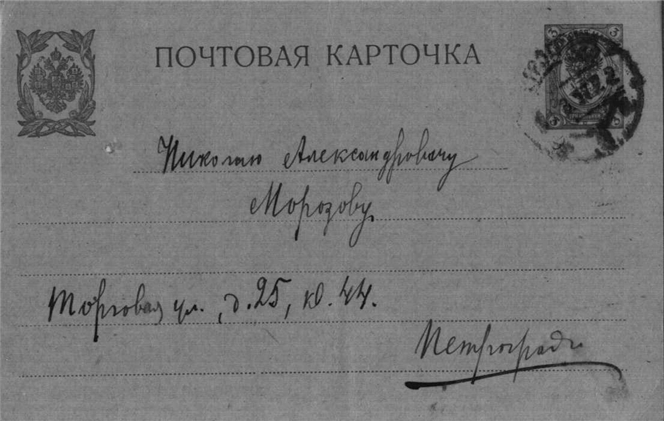 ПОЧТОВАЯ КАРТОЧКА
3 3
3 3
Николаю Александровичу
Морозову
Торговая ул., д. 25, кв. 44.
Петроградъ